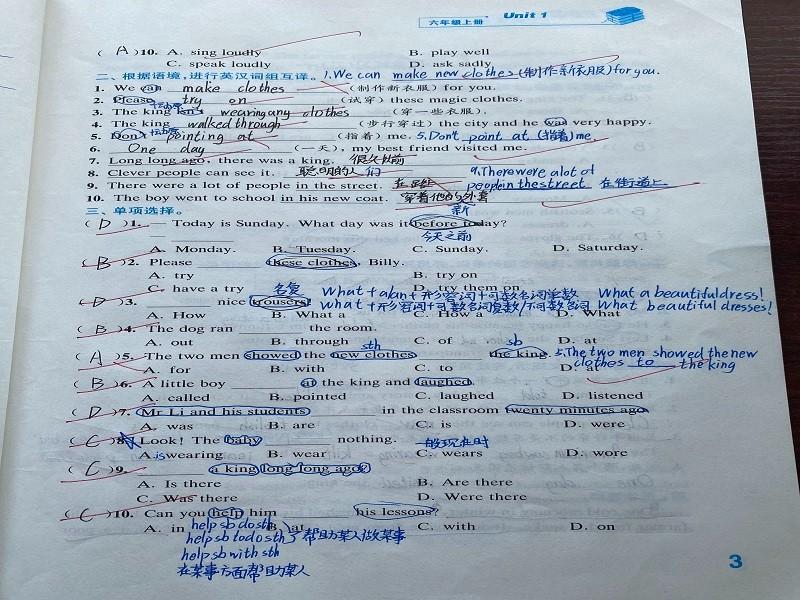 六年级上册 Unit 1
( A )10. A. sing loudly B. play well
C. speak loudly D. ask sadly
二、根据语境,进行英汉词组互译。 1.We can make new clothes (制作新衣服) for you.
1. We can make clothes (制作新衣服) for you.
2. Please try on (试穿) these magic clothes.
3. The king isn't wearing any clothes (穿一些衣服).
4. The king walked through (步行穿过) the city and he was very happy.
5. Don't pointing at (指着) me. 5.Don't point at (指着) me
6. One day (一天), my best friend visited me.
7. Long long ago, there was a king. 很久以前
8. Clever people can see it. 聪明的人们 9.There were a lot of
9. There were a lot of people in the street. people in the street 在街道上
10. The boy went to school in his new coat. 穿着他的外套
新
三、单项选择。
( D )1. Today is Sunday. What day was it before today?
今天之前
A. Monday. B. Tuesday. C. Sunday. D. Saturday.
( B )2. Please these clothes, Billy.
A. try B. try on
C. have a try D. try them on
名复 What+a/an+形容词+可数名词单数 What a beautiful dress!
( D )3. nice trousers! What+形容词+可数名词复数/不可数名词 What beautiful dresses!
A. How B. What a C. How a D. What
( B )4. The dog ran the room.
A. out B. through C. of D. at
sth sb
( A )5. The two men showed the new clothes the king. 5.The two men showed the new
clothes to the king
A. for B. with C. to D. at
( B )6. A little boy at the king and laughed.
A. called B. pointed C. laughed D. listened
( D )7. Mr Li and his students in the classroom twenty minutes ago.
A. was B. are C. is D. were
( C )8. Look! The baby nothing. 一般现在时
A. is wearing B. wear C. wears D. wore
( C )9. a king long long ago?
A. Is there B. Are there
C. Was there D. Were there
( C )10. Can you help him his lessons?
A. in B. at C. with D. on
help sb do sth
help sb to do sth 帮助某人做某事
help sb with sth
在某事方面帮助某人
3